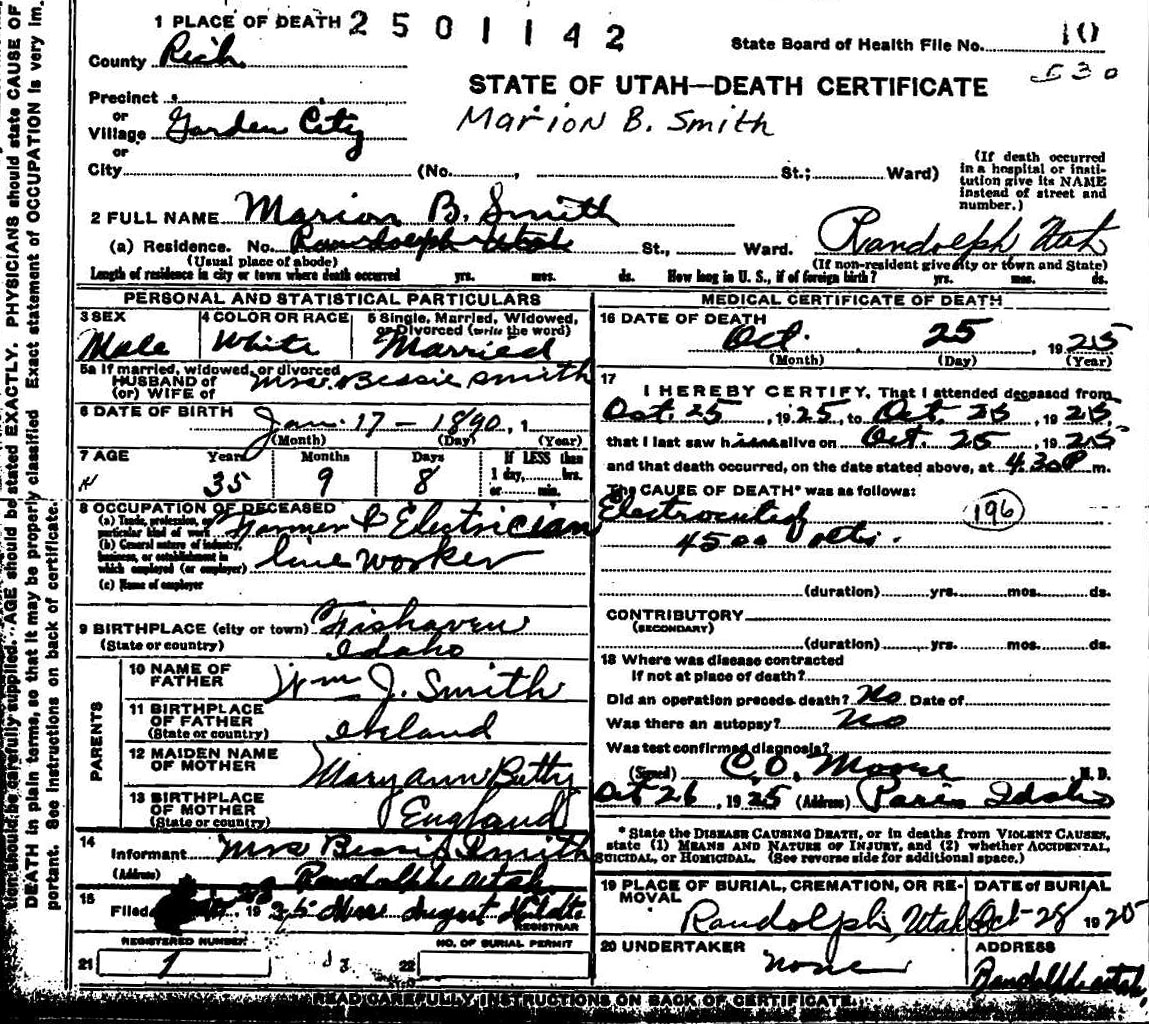 1 PLACE OF DEATH 2 5 0 1 1 4 2
State Board of Health File No. 10
530
County Rich
STATE OF UTAH—DEATH CERTIFICATE
Marion B. Smith
Precinct
or
Village Garden City
or
City (No. , St.; Ward)
(If death occurred
in a hospital or insti-
tution give its NAME
instead of street and
number.)
2 FULL NAME Marion B. Smith
(a) Residence. No. Randolph Utah St., Ward. Randolph Utah
(Usual place of abode) (If non-resident give city or town and State)
Length of residence in city or town where death occurred yrs. mos. ds. How long in U. S., if of foreign birth? yrs. mos. ds.
PERSONAL AND STATISTICAL PARTICULARS
3 SEX 4 COLOR OR RACE 5 Single, Married, Widowed,
or Divorced (write the word)
Male White Married
5a If married, widowed, or divorced
HUSBAND of Mrs. Bessie Smith
(or) WIFE of
6 DATE OF BIRTH
Jan. 17 - 1890, 1
(Month) (Day) (Year)
7 AGE Years Months Days If LESS than
1 day, hrs.
35 9 8 or min.
8 OCCUPATION OF DECEASED
(a) Trade, profession, or
particular kind of work Farmer & Electrician
(b) General nature of industry,
business, or establishment in
which employed (or employer) line worker
(c) Name of employer
9 BIRTHPLACE (city or town) Fishaven
(State or country) Idaho
PARENTS
10 NAME OF
FATHER Wm J. Smith
11 BIRTHPLACE
OF FATHER
(State or country)
12 MAIDEN NAME
OF MOTHER Mary Ann
13 BIRTHPLACE
OF MOTHER England
(State or country)
14
Informant Mrs Bessie Smith
(Address) Randolph Utah
15
Filed , 1925 Mrs August
REGISTRAR
REGISTERED NUMBER NO. OF BURIAL PERMIT
21 1 22
MEDICAL CERTIFICATE OF DEATH
16 DATE OF DEATH
Oct. 25, 1925
(Month) (Day) (Year)
17
I HEREBY CERTIFY, That I attended deceased from
Oct. 25, 1925, to Oct. 25, 1925
that I last saw him alive on Oct. 25, 1925
and that death occurred, on the date stated above, at 4.30 P m.
The CAUSE OF DEATH* was as follows:
Electrocuted 196
4500 volts.
(duration) yrs. mos. ds.
CONTRIBUTORY
(SECONDARY)
(duration) yrs. mos. ds.
18 Where was disease contracted
if not at place of death?
Did an operation precede death? No Date of
Was there an autopsy? No
Was test confirmed diagnosis?
(Signed) C.O. Moore M. D.
Oct 26, 1925 (Address) Paris Idaho
* State the DISEASE CAUSING DEATH, or in deaths from VIOLENT CAUSES,
state (1) MEANS AND NATURE OF INJURY, and (2) whether ACCIDENTAL,
SUICIDAL, or HOMICIDAL. (See reverse side for additional space.)
19 PLACE OF BURIAL, CREMATION, OR RE-
MOVAL
DATE of BURIAL
Randolph, Utah Oct-28 1925
20 UNDERTAKER ADDRESS
none Randolph Utah
READ CAREFULLY INSTRUCTIONS ON BACK OF CERTIFICATE.
tion should be carefully supplied. AGE should be stated EXACTLY. PHYSICIANS should state CAUSE OF
DEATH in plain terms, so that it may be properly classified. Exact statement of OCCUPATION is very im-
portant. See instructions on back of certificate.